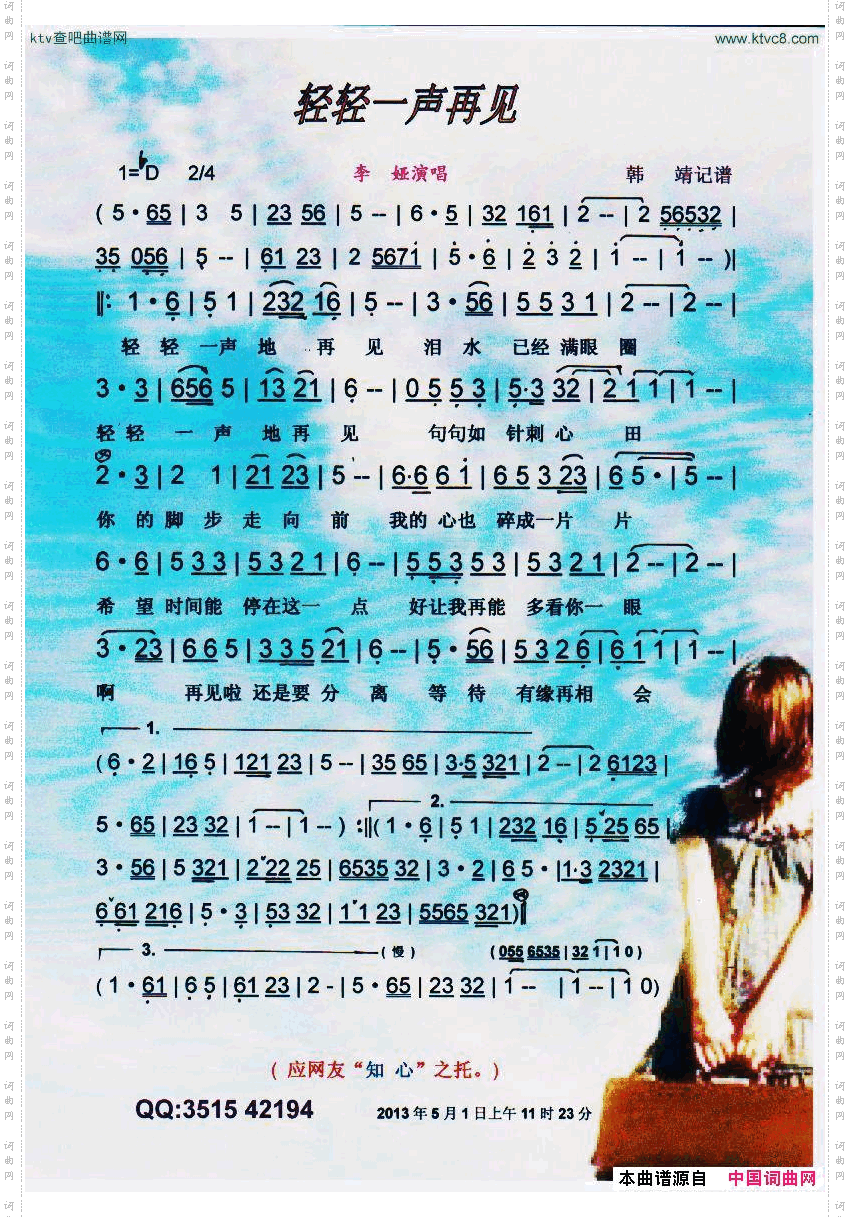 ktv查吧曲谱网 www.ktvc8.com
轻轻一声再见
1=♭D 2/4 李 娅演唱 韩 靖记谱
( 5 · 65 | 3 5 | 23 56 | 5 -- | 6 · 5 | 32 161 | 2 -- | 2 56532 |
35 056 | 5 -- | 61 23 | 2 5671 | 5 · 6 | 2 3 2 | 1 -- | 1 -- )||
||: 1 · 6 | 5 1 | 232 16 | 5 -- | 3 · 56 | 5 5 3 1 | 2 -- | 2 -- |
轻 轻 一声 地 再 见 泪 水 已经 满眼 圈
3 · 3 | 656 5 | 13 21 | 6 -- | 0 5 5 3 | 5·3 32 | 2 1 1 | 1 -- |
轻 轻 一 声 地 再 见 句句如 针刺 心 田
2 · 3 | 2 1 | 21 23 | 5 -- | 6·6 6 1 | 6 5 3 23 | 6 5 · | 5 -- |
你 的 脚 步 走 向 前 我的 心也 碎成一片 片
6 · 6 | 5 3 3 | 5 3 2 1 | 6 -- | 5 5 3 5 3 | 5 3 2 1 | 2 -- | 2 -- |
希 望 时间能 停在这一 点 好让我再能 多看你一 眼
3 · 23 | 6 6 5 | 3 3 5 21 | 6 -- | 5 · 56 | 5 3 2 6 | 6 1 1 | 1 -- |
啊 再见啦 还是要 分 离 等 待 有缘再相 会
1.
( 6 · 2 | 16 5 | 121 23 | 5 -- | 35 65 | 3·5 321 | 2 -- | 2 6123 |
2.
5 · 65 | 23 32 | 1 -- | 1 -- ) :||( 1 · 6 | 5 1 | 232 16 | 5 25 65 |
3 · 56 | 5 321 | 2 22 25 | 6535 32 | 3 · 2 | 6 5 · | 1·3 2321 |
6 61 216 | 5 · 3 | 53 32 | 1 1 23 | 5565 321)||
3. ( 慢 ) ( 055 6535 | 32 1 | 1 0 )
( 1 · 61 | 6 5 | 61 23 | 2 - | 5 · 65 | 23 32 | 1 -- | 1 -- | 1 0)
( 应网友“知 心”之托。)
QQ:3515 42194 2013 年 5 月 1 日上午 11 时 23 分
本曲谱源自 中国词曲网